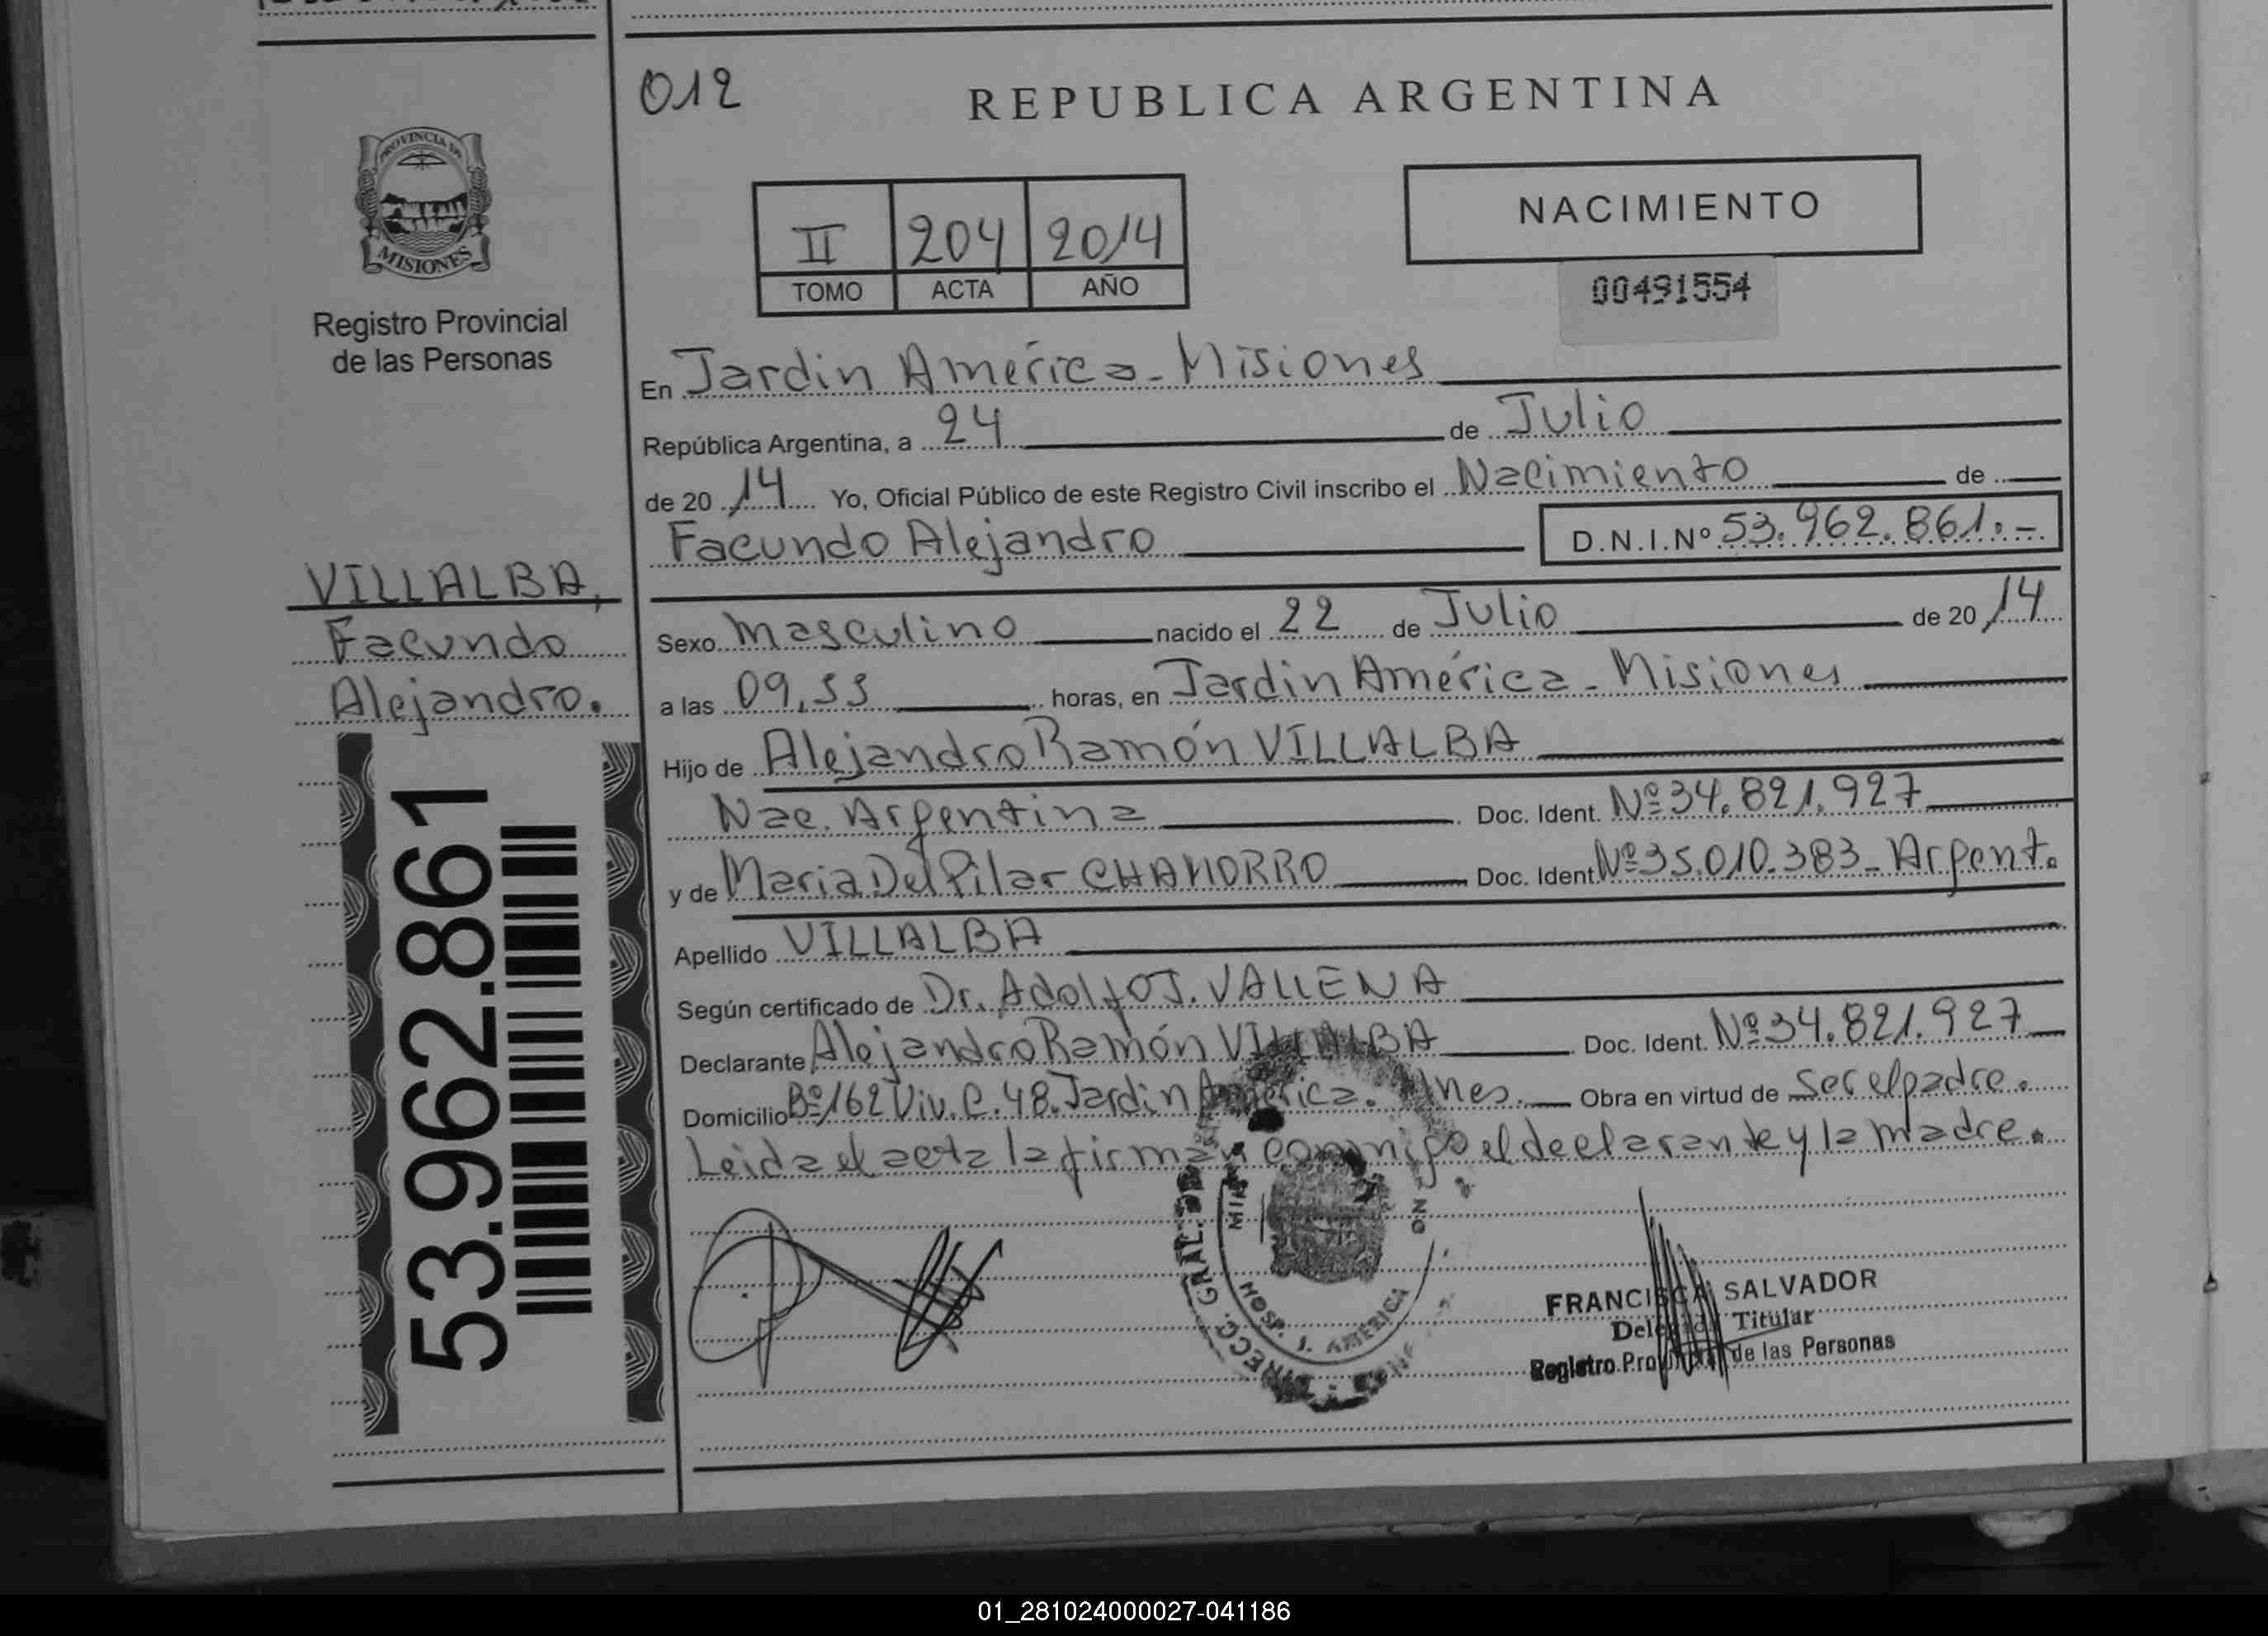 012
REPUBLICA ARGENTINA
PROVINCIA DE
MISIONES
Registro Provincial
de las Personas
II 204 2014
TOMO ACTA AÑO
NACIMIENTO
00491554
En Jardín América - Misiones
República Argentina, a 24 de Julio
de 20 14 Yo, Oficial Público de este Registro Civil inscribo el Nacimiento de
Facundo Alejandro D.N.I.Nº 53.962.861.-
VILLALBA,
Facundo
Alejandro.
53.962.861
Sexo Masculino nacido el 22 de Julio de 20 14
a las 09,55 horas, en Jardin América - Misiones
Hijo de Alejandro Ramón VILLALBA
Nac. Argentina Doc. Ident. Nº 34.821.927
y de Maria Del Pilar CHAMORRO Doc. Ident. Nº 35.010.383 - Argent.
Apellido VILLALBA
Según certificado de Dr. Adolfo J. VALLENA
Declarante Alejandro Ramón VILLALBA Doc. Ident. Nº 34.821.927
Domicilio Bº 162 Viv. C. 48. Jardin América. Mnes. Obra en virtud de ser el padre.
Leida el acta la firman conmigo el declarante y la madre.
DIRECC. GRAL. DE
HOSP. J. AMERICA
FRANCISCA SALVADOR
Delegada Titular
Registro Provincial de las Personas
01_281024000027-041186